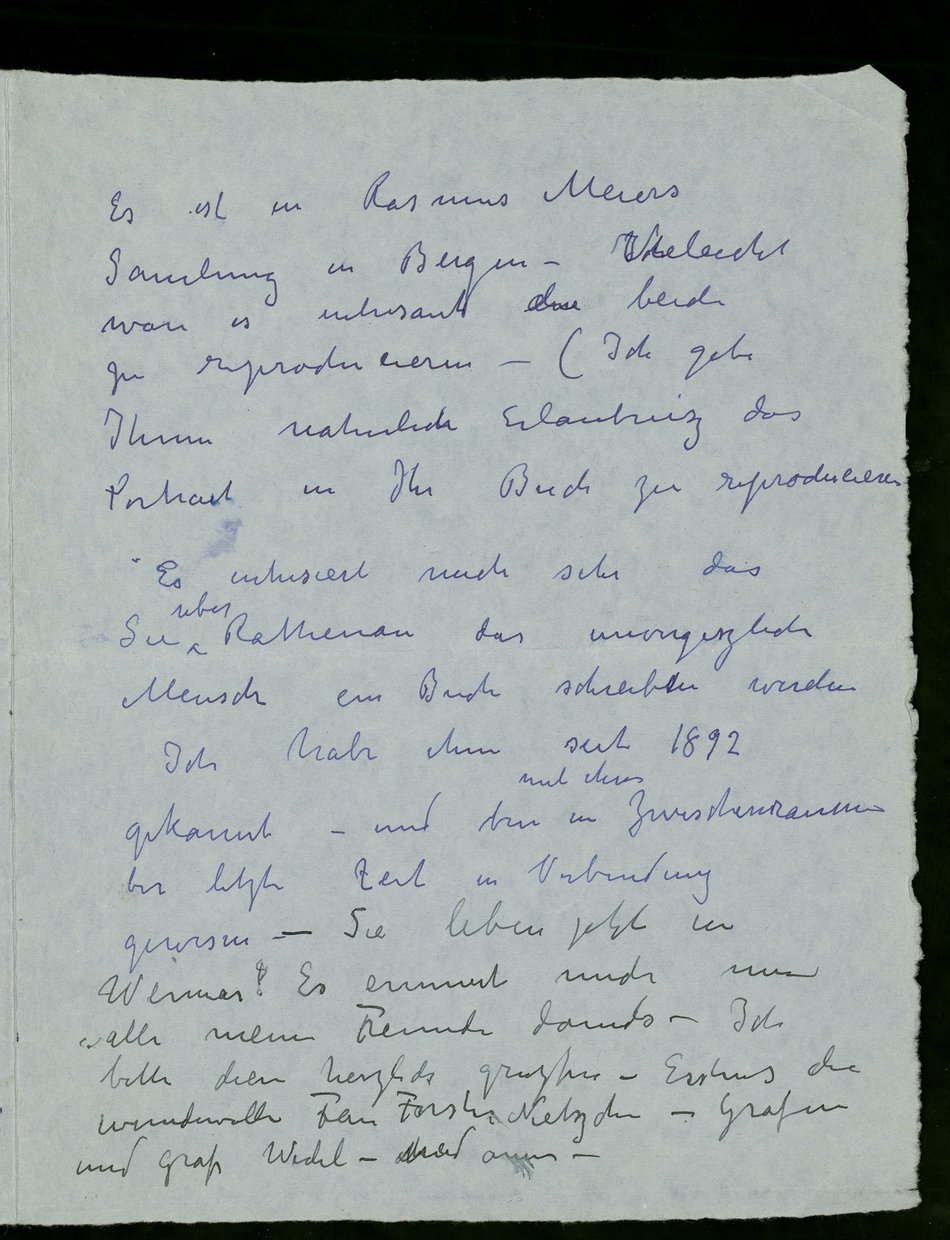 Es ist in Rasmus Meiers
Samlung in Bergen – Vieleicht
ware es intresant die beide
zu reproducieren – (Ich gebe
Ihnen naturlich Erlaubnisz das
Portrait in Ihr Buch zu reproducieren
Es intresiert mich sehr das
uber
Sie Rathenau das unvorgeszlich
Mensch ein Buch schreiben werden
Ich habe ihm seit 1892
mit ihm
gekannt – und bin in Zwischenraumen
bis letzte Zeit in Verbindung
gewesen – Sie leben jetzt in
Weimar! Es erinnert mich
alle meine Freunde damals – Ich
bitte diese herzlich grüszen – Erstens die
wundervolle Frau Forster Nietzche – Grafin
und Graf Wedel – und